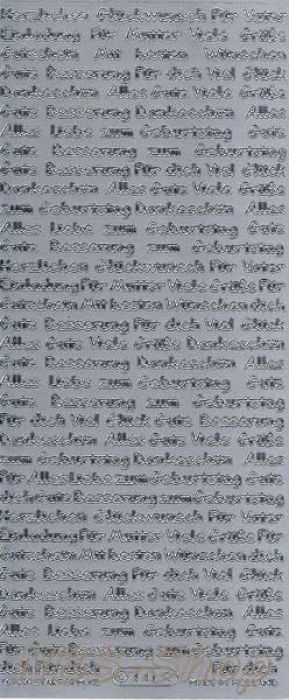 Herzlichen Glückwunsch Für Vater
Einladung Für Mutter Viele Grüße
Gutschein Mit besten Wünschen
Gute Besserung Für dich Viel Glück
Dankeschön Alles Gute Viele Grüße
Alles Liebe zum Geburtstag Gute
Gute Besserung zum Geburtstag
Gute Besserung Für dich Viel Glück
Dankeschön Alles Gute Viele Grüße
zum Geburtstag Dankeschön Alles
Alles Liebe zum Geburtstag Gute
Gute Besserung zum Geburtstag
Herzlichen Glückwunsch Für Vater
Einladung Für Mutter Viele Grüße Für
Gutschein Mit besten Wünschen dich
Gute Besserung Für dich Viel Glück
Alles Gute Viele Grüße Dankeschön
Gute Besserung Dankeschön Alles
Alles Liebe zum Geburtstag Gute
Gute Besserung zum Geburtstag
Für dich Viel Glück Gute Besserung
Dankeschön Alles Gute Viele Grüße
zum Geburtstag Dankeschön Alles
Für Alles Liebe zum Geburtstag Gute
dich Gute Besserung zum Geburtstag
Herzlichen Glückwunsch Für Vater
Einladung Für Mutter Viele Grüße Für
Gutschein Mit besten Wünschen dich
Gute Besserung Für dich Viel Glück
Dankeschön Alles Gute Viele Grüße
Gute Besserung Dankeschön Alles
Alles Liebe zum Geburtstag Gute
Für Gute Besserung zum Geburtstag
dich Für dich Für dich